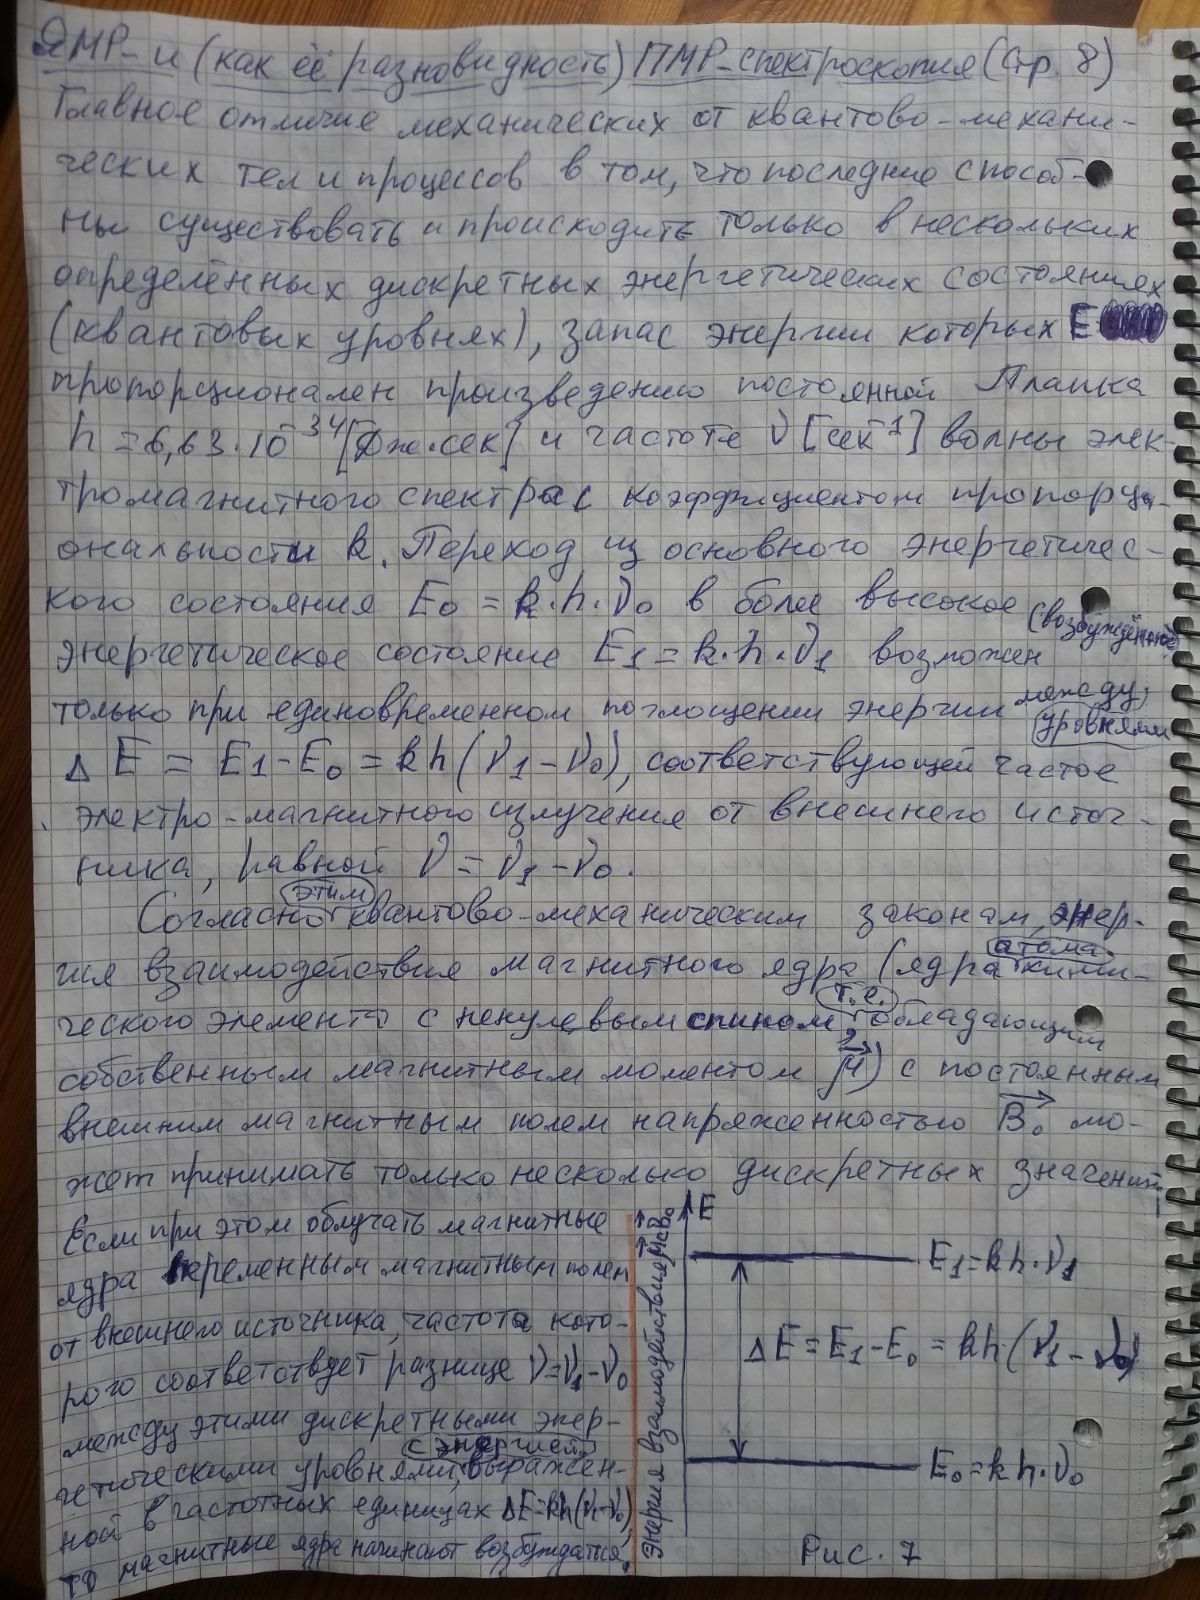 ЯМР- и (как её разновидность) ПМР-спектроскопия (Стр. 8)
Главное отличие механических от квантово-механи-
ческих тел и процессов в том, что последние способ-
ны существовать и происходить только в нескольких
определённых дискретных энергетических состояниях
(квантовых уровнях), запас энергии которых E
пропорционален произведению постоянной Планка
h = 6,63·10⁻³⁴ [Дж·сек] и частоте ν [сек⁻¹] волны элек-
тромагнитного спектра с коэффициентом пропорци-
ональности k. Переход из основного энергетичес-
кого состояния E₀ = k·h·ν₀ в более высокое (возбуждённое)
энергетическое состояние E₁ = k·h·ν₁ возможен
только при единовременном поглощении энергии между
уровнями
Δ E = E₁ - E₀ = kh(ν₁ - ν₀), соответствующей частоте
электро-магнитного излучения от внешнего источ-
ника, равной ν = ν₁ - ν₀.
Согласно этим квантово-механическим законам, энер-
гия взаимодействия магнитного ядра (ядра атома хими-
ческого элемента с ненулевым спином, т.е. обладающим
собственным магнитным моментом μ⃗) с постоянным
внешним магнитным полем напряженностью B⃗₀ мо-
жет принимать только несколько дискретных значений.
Если при этом облучать магнитные
ядра переменным магнитным полем
от внешнего источника, частота кото-
рого соответствует разнице ν = ν₁ - ν₀
между этими дискретными энер-
гетическими уровнями, с энергией, выражен-
ной в частотных единицах ΔE = kh(ν₁-ν₀),
то магнитные ядра начинают возбуждаться.
Энергия взаимодействия μ⃗ с B⃗₀
E
E₁ = kh·ν₁
ΔE = E₁ - E₀ = kh·(ν₁ - ν₀)
E₀ = kh·ν₀
Рис. 7